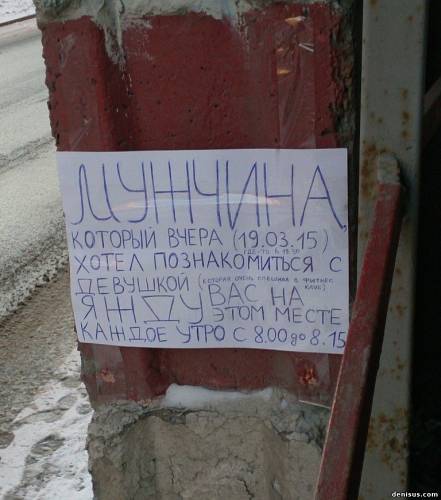 МУЖЧИНА,
КОТОРЫЙ ВЧЕРА (19.03.15)
где-то в 19.30
ХОТЕЛ ПОЗНАКОМИТЬСЯ С
ДЕВУШКОЙ (которая очень спешила в фитнес клуб)
Я ЖДУ ВАС НА
ЭТОМ МЕСТЕ
КАЖДОЕ УТРО С 8.00 до 8.15
denisus.com